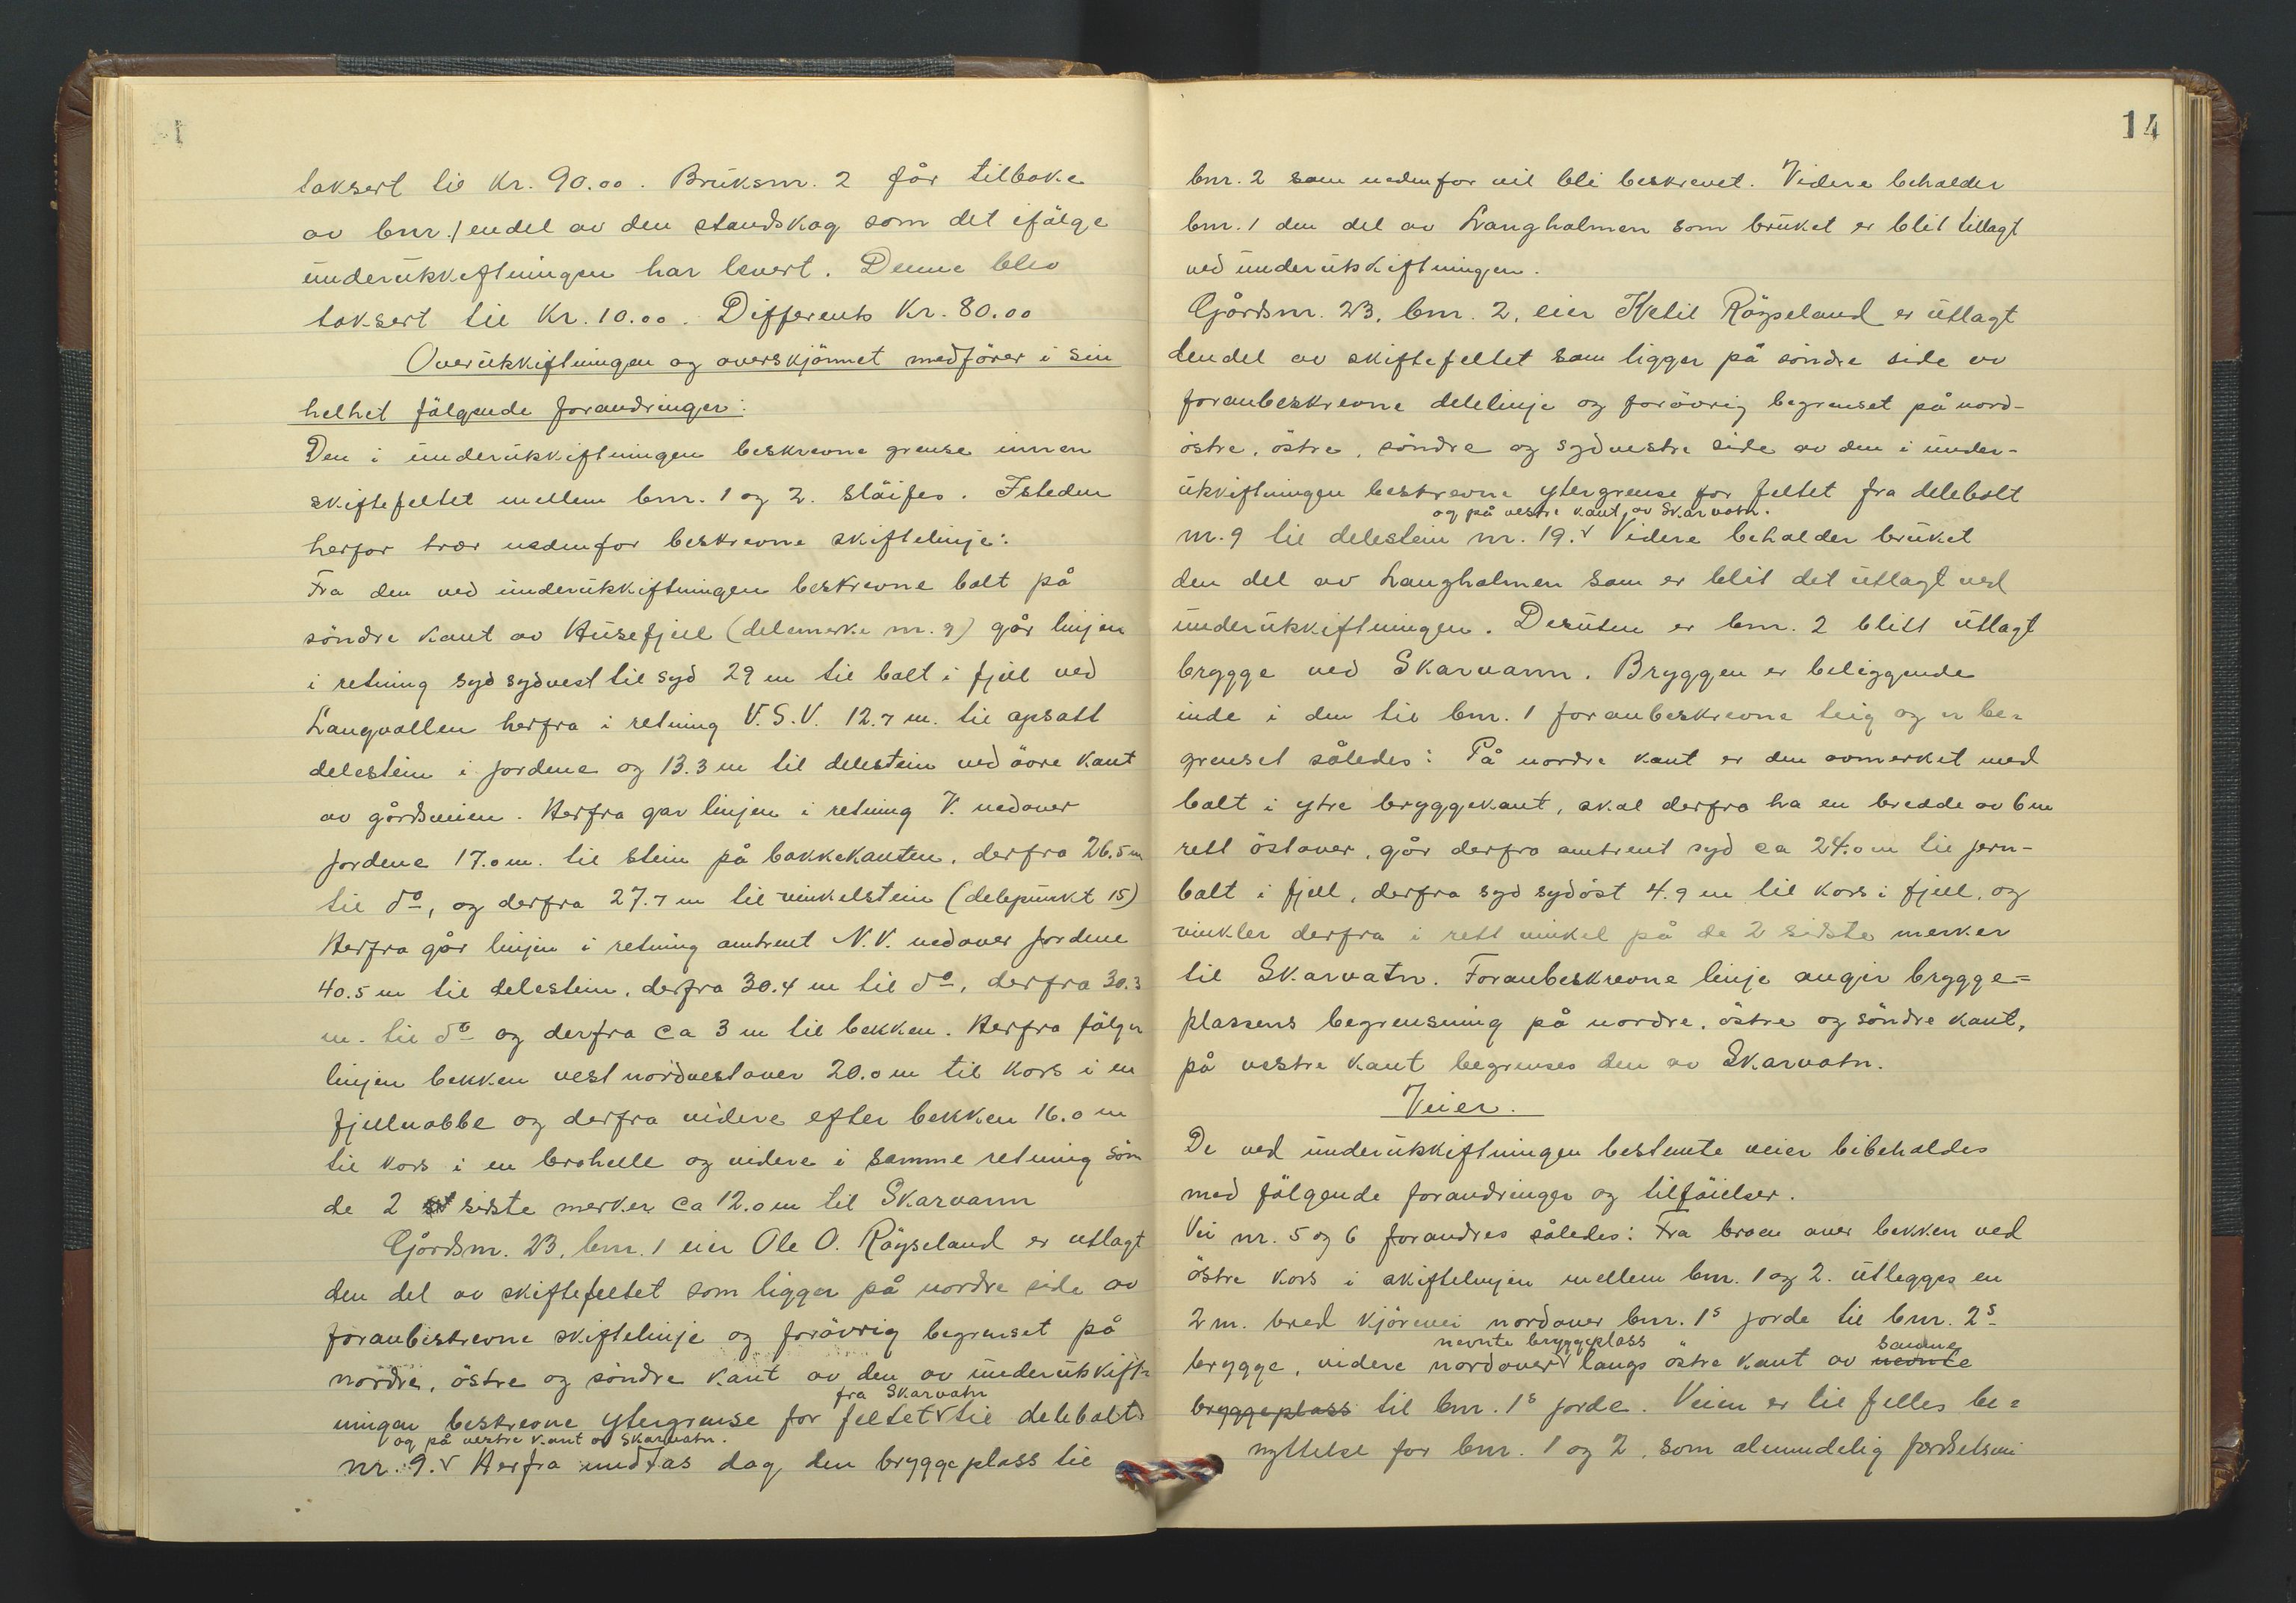 taksert til Kr. 90.00. Bruksnr. 2 får tilbake
av bnr. 1 endel av den standskog som det ifölge
underutskiftningen har levert. Denne blev
taksert til Kr. 10.00. Differents Kr. 80.00
Overutskiftningen og overskjönnet medförer i sin
helhet fölgende forandringer:
Den i underutskiftningen beskrevne grense innen
skiftefeltet mellem bnr. 1 og 2. slöifes. Isteden
herfor trær nedenfor beskrevne skiftelinje:
Fra den ved underutskiftningen beskrevne bolt på
söndre kant av Husefjell (delemerke nr. 9) går linjen
i retning syd sydvest til syd 29 m til bolt i fjell ved
Langvollen herfra i retning V.S.V. 12.7 m. til opsatt
delestein i jordene og 13.3 m til delestein ved övre kant
av gårdsveien. Herfra gar linjen i retning V. nedover
jordene 17.0 m. til stein på bakkekanten, derfra 26.5 m
til do, og derfra 27.7 m til vinkelstein (delepunkt 15)
Herfra går linjen i retning omtrent N.V. nedover jordene
40.5 m til delestein, derfra 30.4 m til do, derfra 30.3
m. til do og derfra ca 3 m til bekken. Herfra fölger
linjen bekken vest nordvestover 20.0 m til kors i en
fjellnabbe og derfra videre efter bekken 16.0 m
til kors i en brohelle og videre i samme retning som
de 2 sidste merker ca 12.0 m til Skarvann
Gårdsnr. 23, bnr. 1 eier Ole O. Röyseland er utlagt
den del av skiftefeltet som ligger på nordre side av
foranbeskrevne skiftelinje og forövrig begrenset på
nordre, östre og söndre kant av den av underutskift=
fra Skarvatn
ningen beskrevne ytergrense for feltet til delebolt
og på vestre kant av Skarvatn.
nr. 9. Herfra undtas dog den bryggeplass til
14
bnr. 2 som nedenfor vil bli beskrevet. Videre beholder
bnr. 1 den del av Langholmen som bruket er blit tillagt
ved underutskiftningen.
Gårdsnr. 23, bnr. 2, eier Ketil Röyseland er utlagt
den del av skiftefeltet som ligger på söndre side av
foranbeskrevne delelinje og forövrig begrenset på nord-
östre, östre, söndre og sydvestre side av den i under-
utskiftningen beskrevne ytergrense for feltet fra delebolt
og på vestre kant av Skarvatn.
nr. 9 til delestein nr. 19. Videre beholder bruket
den del av Langholmen som er blit det utlagt ved
underutskiftningen. Desuten er bnr. 2 blitt utlagt
brygge ved Skarvann. Bryggen er beliggende
inde i den til bnr. 1 foranbeskrevne teig og er be=
grenset således: På nordre kant er den avmerket med
bolt i ytre bryggekant, skal derfra ha en bredde av 6 m
rett östover, går derfra omtrent syd ca 24.0 m til jern-
bolt i fjell, derfra syd sydöst 4.9 m til kors i fjell, og
vinkler derfra i rett vinkel på de 2 sidste merker
til Skarvatn. Foranbeskrevne linje angir brygge=
plassens begrensning på nordre, östre og söndre kant,
på vestre kant begrenses den av Skarvatn.
Veier.
De ved underutskiftningen bestemte veier bibeholdes
med fölgende forandringer og tilföielser.
Vei nr. 5 og 6 forandres således: Fra broen over bekken ved
östre kors i skiftelinjen mellem bnr. 1 og 2. utlegges en
2 m. bred kjörevei nordover bnr. 1s jorde til bnr. 2s
nevnte bryggeplass samme
brygge, videre nordover langs östre kant av nevnte
bryggeplass til bnr. 1s jorde. Veien er til felles be=
nyttelse for bnr. 1 og 2, som almindelig ferdselsvei